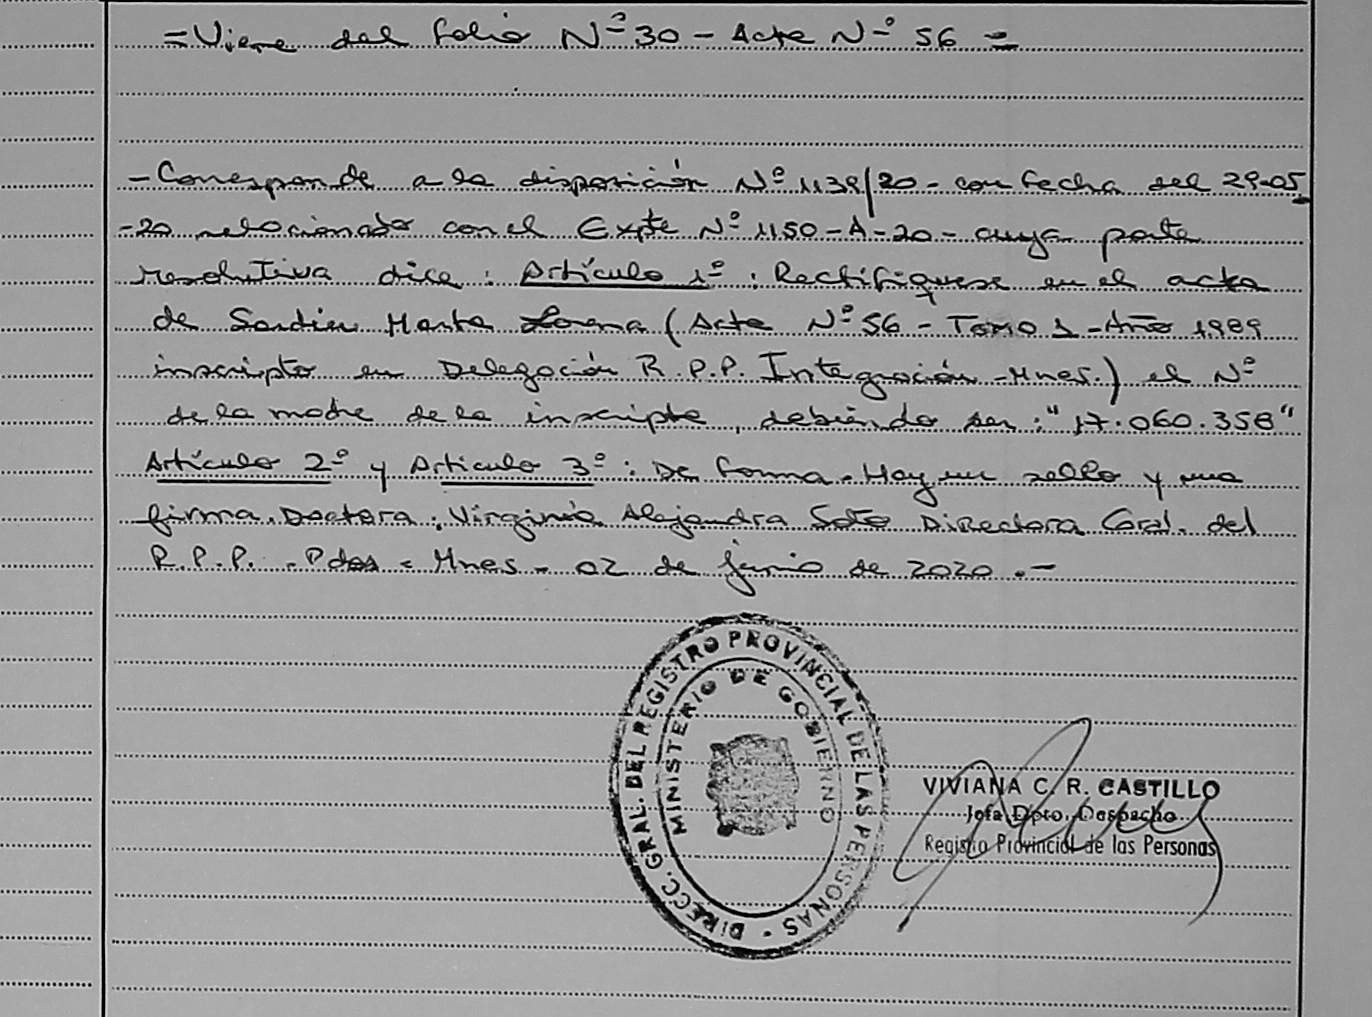 =Viene del folio Nº 30 - Acta Nº 56 =
- Corresponde a la disposición Nº 1139/20 - con fecha del 29-05
-20 relacionado con el Expte Nº 1150-A-20- cuya parte
resolutiva dice: Artículo 1º: Rectifíquese en el acta
de Marta Lorena (Acta Nº 56 - Tomo 1 - Año 1989
inscripta en Delegación R.P.P. Integración - Mnes.) el Nº
de la madre de la inscripta, debiendo ser: "17.060.358"
Artículo 2º y Articulo 3º: De forma. Hay un sello y una
firma. Doctora: Virginia Alejandra Soto Directora Gral. del
R.P.P. - Pdas = Mnes - 02 de junio de 2020.-
DIRECC. GRAL. DEL REGISTRO PROVINCIAL DE LAS PERSONAS -
MINISTERIO DE GOBIERNO
VIVIANA C. R. CASTILLO
Jefa Dpto. Despacho
Registro Provincial de las Personas